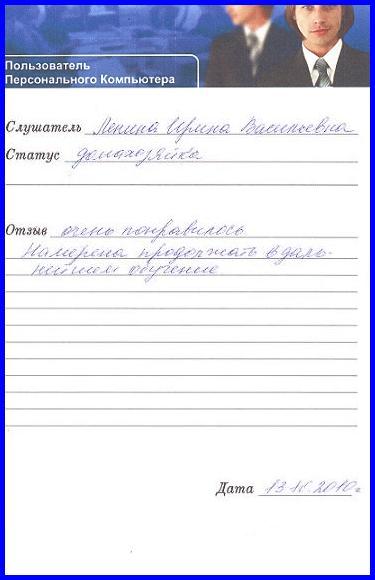 Пользователь
Персонального Компьютера
Слушатель Ленина Ирина Васильевна
Статус домахозяйка
Отзыв очень понравилось
Намерена продолжать в даль-
нейшем обучение
Дата 2010г